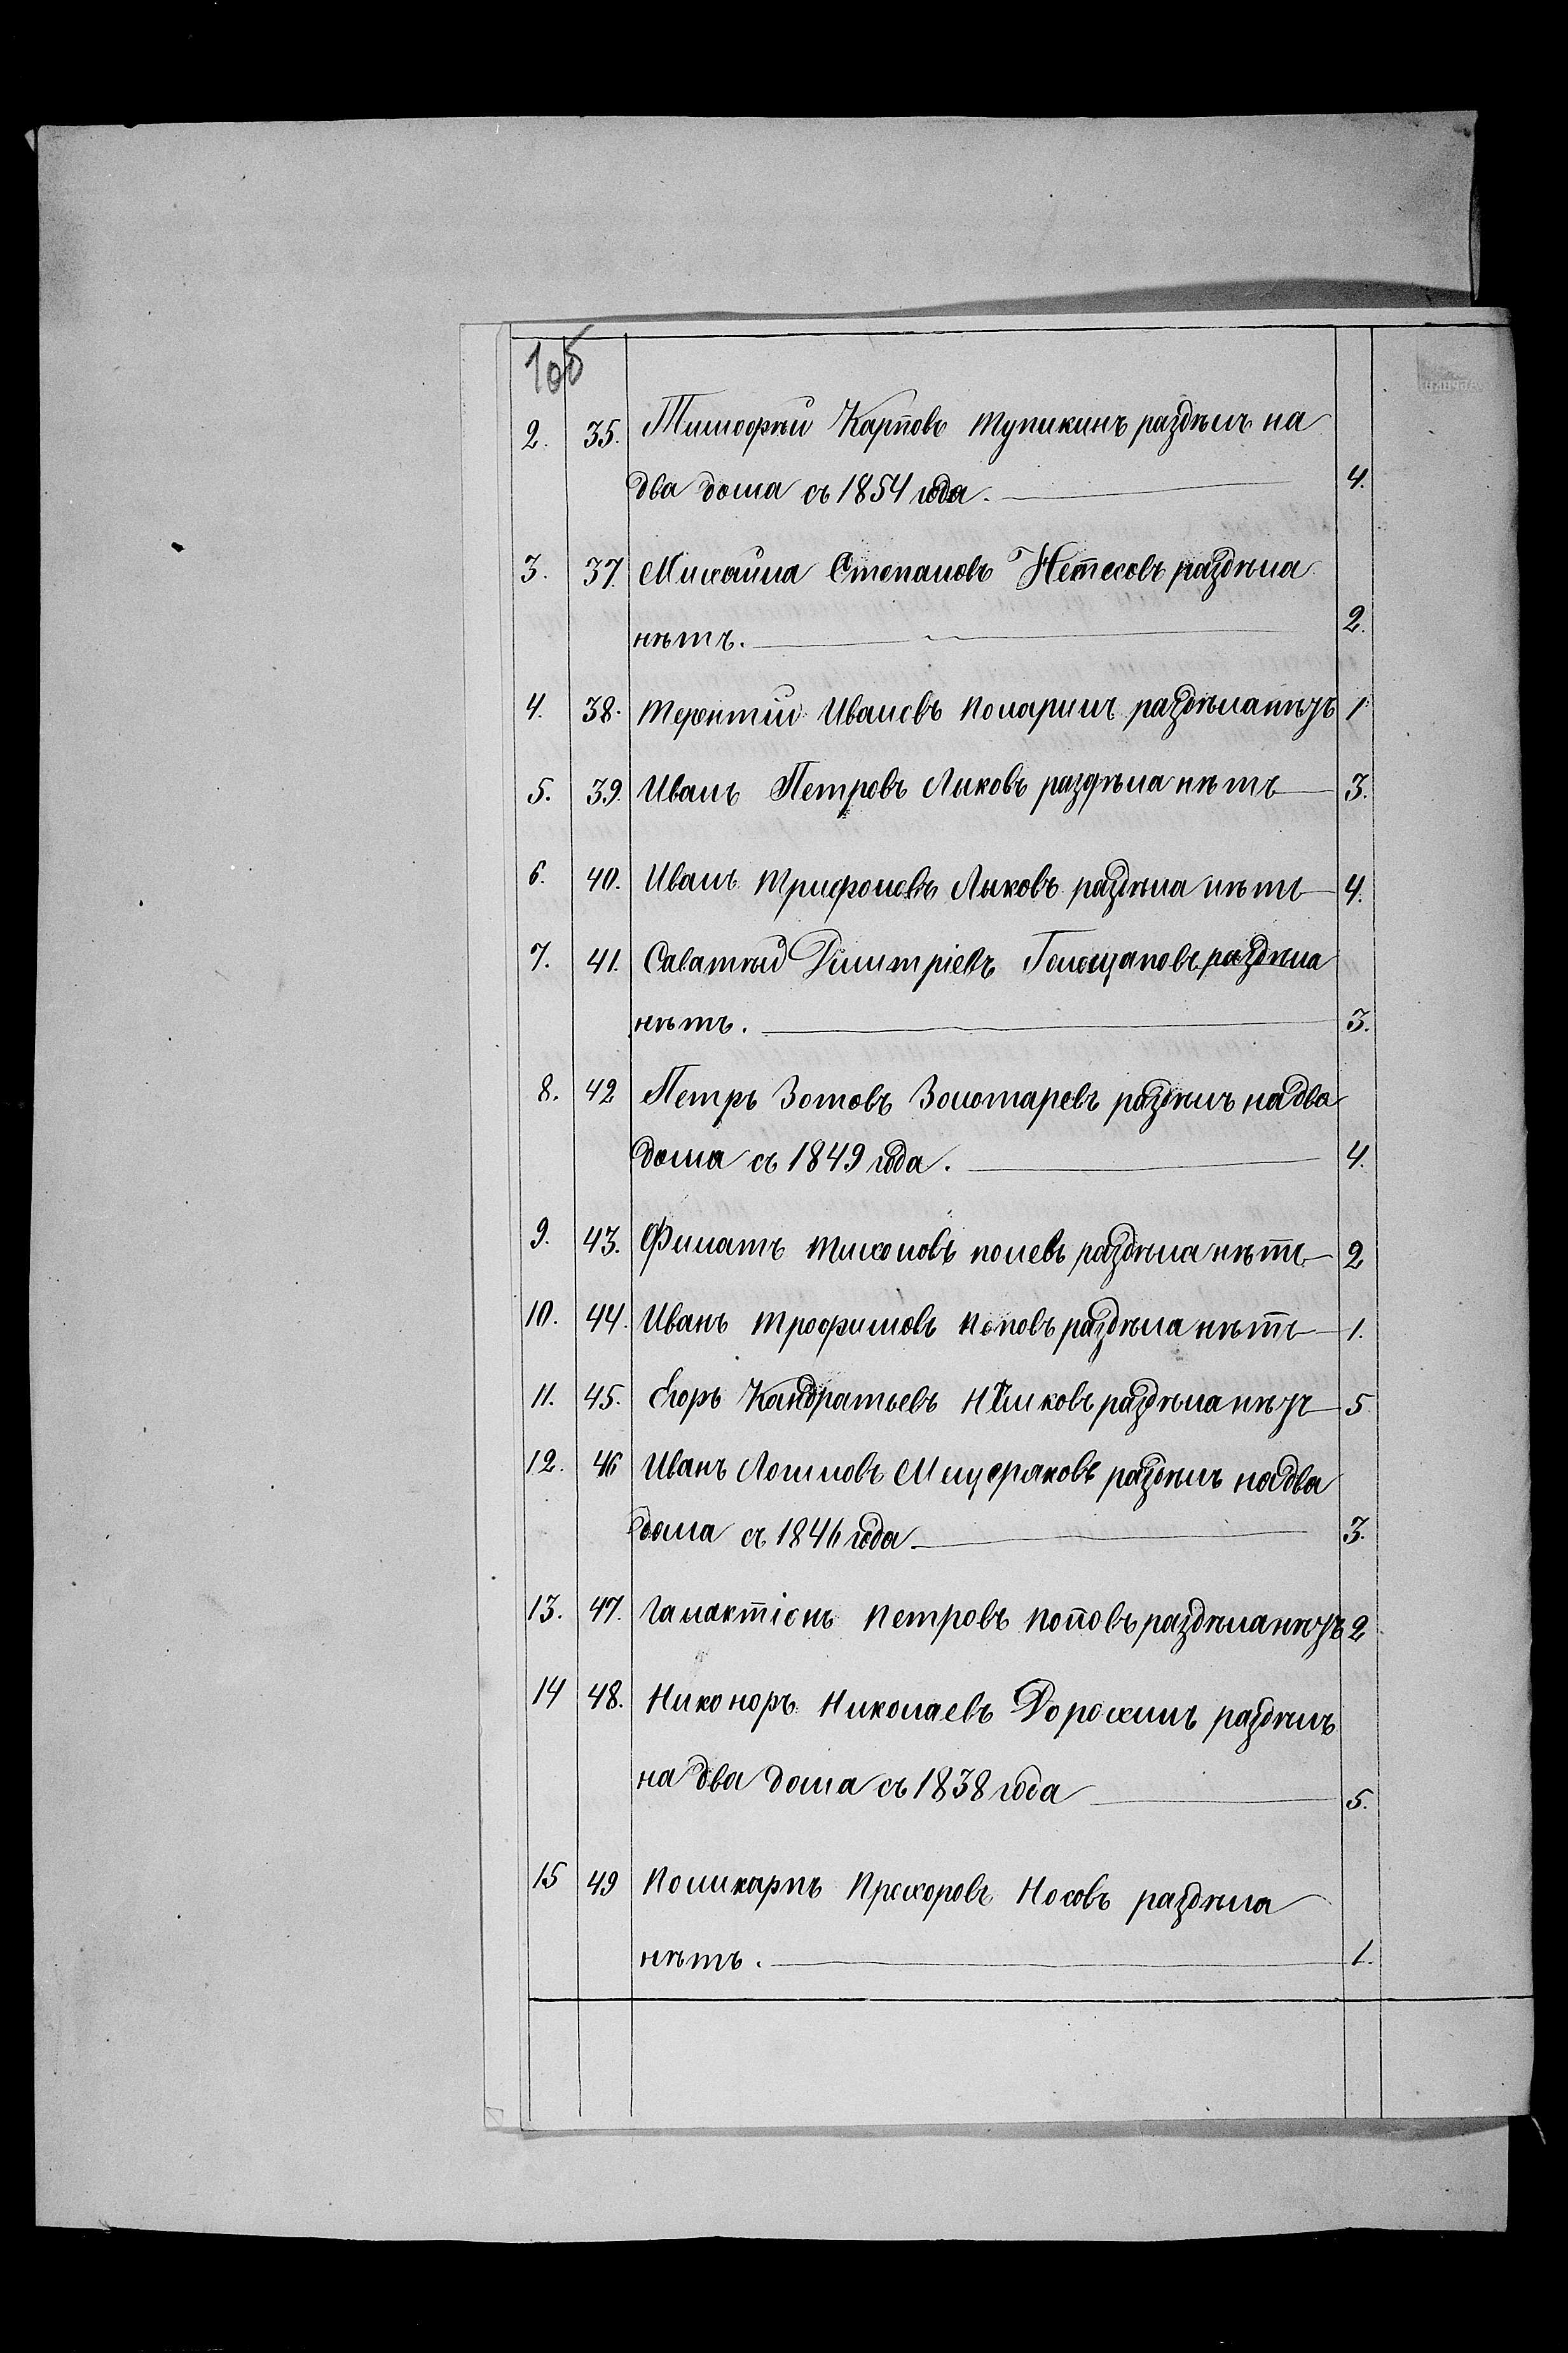 105
2. 35. Тимофѣй Карповъ Тупикинъ раздѣлъ на
два дома съ 1854 года. 4.
3. 37. Михайла Степановъ Нетесовъ раздѣла
нѣтъ. 2.
4. 38. Терентій Ивановъ раздѣла нѣтъ 1
5. 39. Иванъ Петровъ Лыковъ раздѣла нѣтъ 3.
6. 40. Иванъ Трифоновъ Лыковъ раздѣла нѣтъ 4.
7. 41. Саватѣй Димитріевъ Голощаповъ раздѣла
нѣтъ. 3.
8. 42 Петръ Зотовъ Золотаревъ раздѣлъ на два
дома съ 1849 года. 4.
9. 43. Филатъ Тихоновъ раздѣла нѣтъ 2
10. 44. Иванъ Трофимовъ Поповъ раздѣла нѣтъ 1.
11. 45. Егоръ Кандратьевъ раздѣла нѣтъ 5
12. 46 Иванъ Логиновъ Мещеряковъ раздѣлъ на два
дома съ 1846 года 3.
13. 47. Галактіонъ Петровъ Поповъ раздѣла нѣтъ 2
14 48. Никоноръ Николаевъ Дорохинъ раздѣлъ
на два дома съ 1838 года 5.
15 49 Поликарпъ Прохоровъ Носовъ раздѣла
нѣтъ. 1.